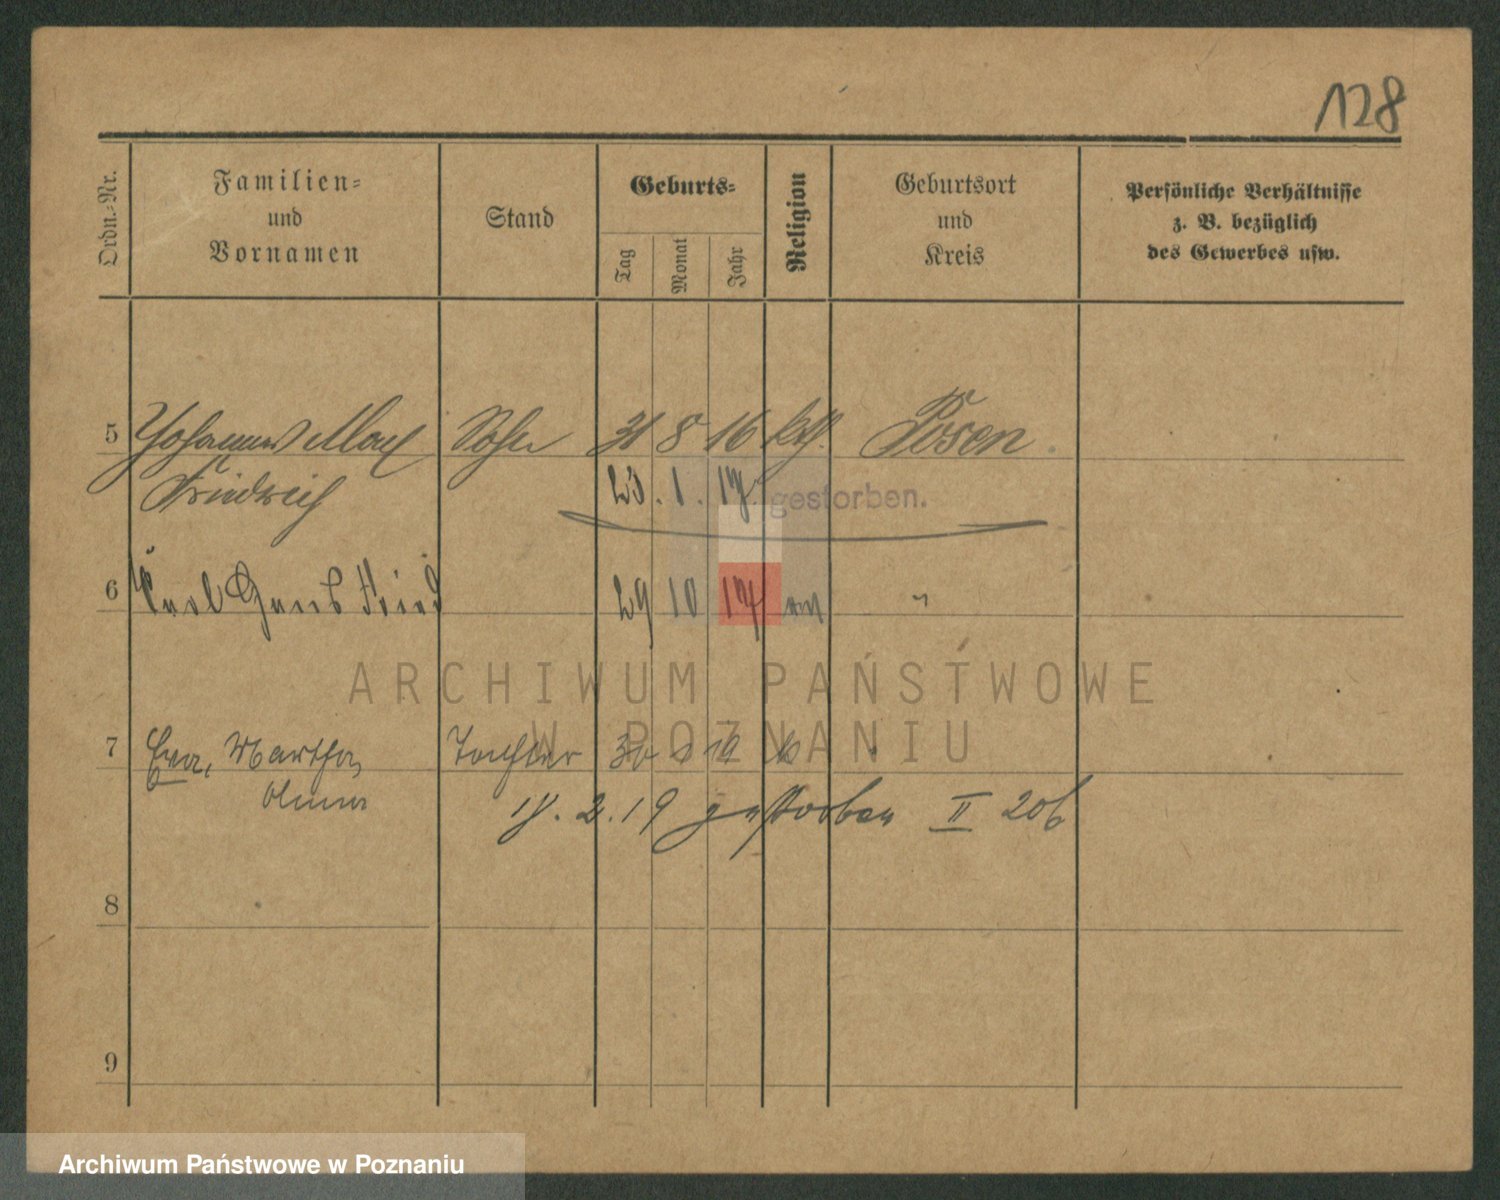 128
Ordn.-Nr.
Familien-
und
Vornamen
Stand
Geburts-
Tag
Monat
Jahr
Religion
Geburtsort
und
Kreis
Persönliche Verhältnisse
z. B. bezüglich
des Gewerbes usw.
5 Johannes Max Sohn 31 8 16 kth. Posen.
Friedrich 23. 1. 17 gestorben.
6 Karl Hans Fried 29 10 17 "
ARCHIWUM PAŃSTWOWE
W POZNANIU
7 Eva, Martha, Tochter 30 19
17. 2. 19 gestorben II 206
8
9
Archiwum Państwowe w Poznaniu